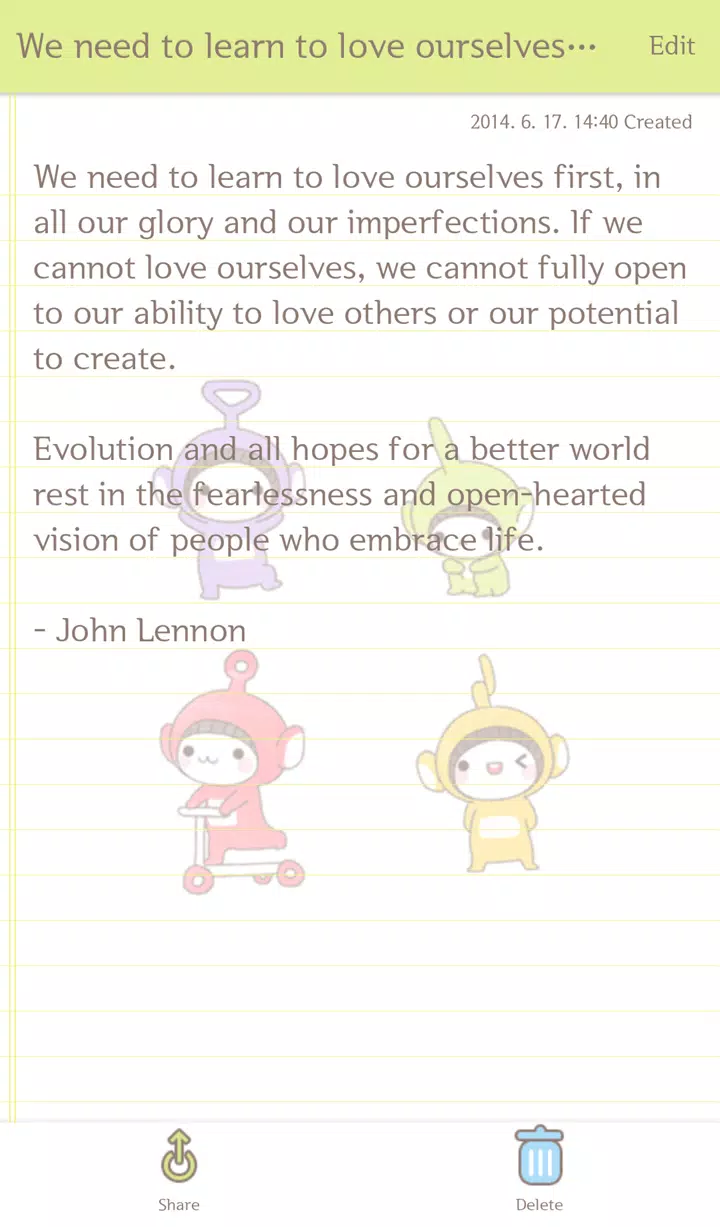 We need to learn to love ourselves… Edit
2014. 6. 17. 14:40 Created
We need to learn to love ourselves first, in
all our glory and our imperfections. If we
cannot love ourselves, we cannot fully open
to our ability to love others or our potential
to create.
Evolution and all hopes for a better world
rest in the fearlessness and open-hearted
vision of people who embrace life.
- John Lennon
Share Delete